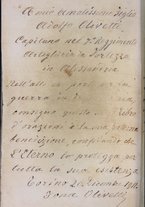 A mio amatissimo figlio
Adolfo Olivetti
Capitano nel 7 Reggimento
Artiglieria da Fortezza
in Alessandria
Nell'atto di partire per la
guerra in
consegno questo libro
d'orazioni e la mia
benedizione, confidando che
L'Eterno lo protegga per
tutta la sua esistenza
Torino 20 Dicembre
Olivetti